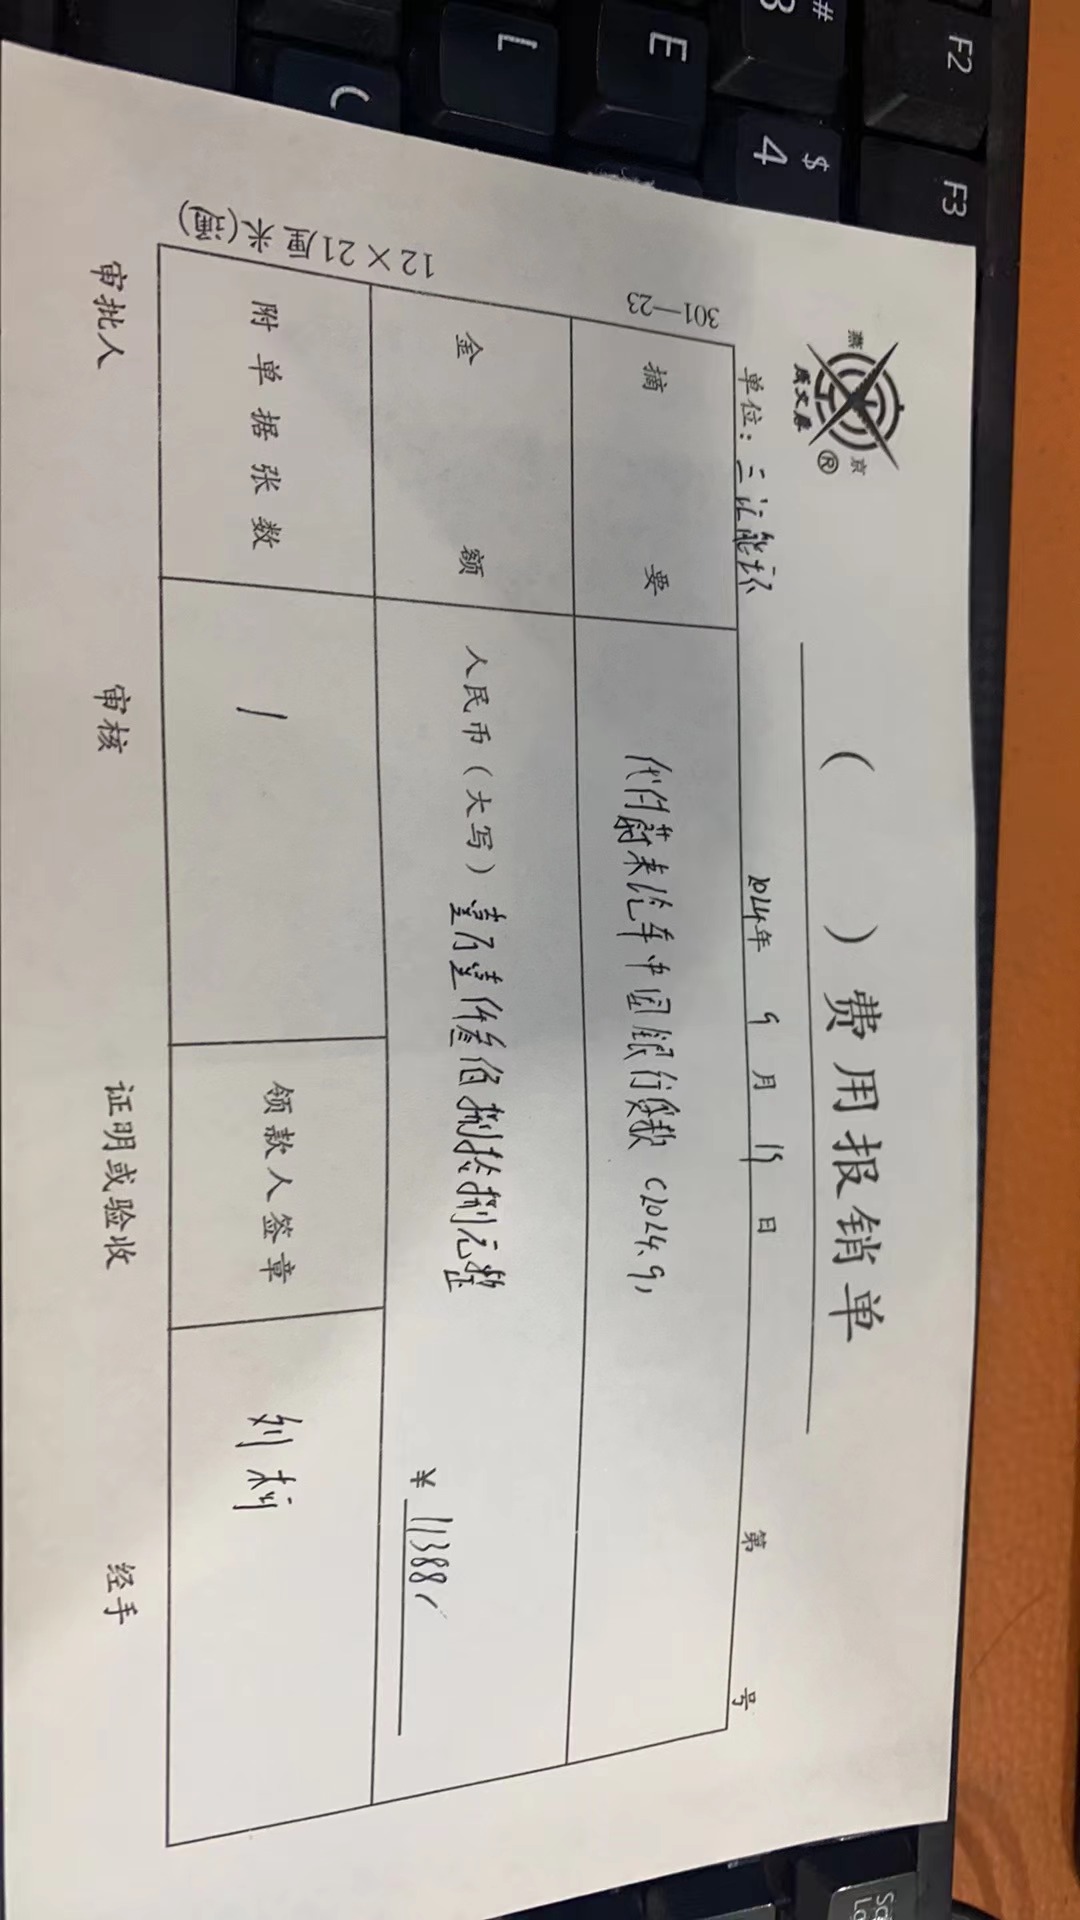 燕京
废文康®
（ ）费用报销单
单位：三汇能环 2024年 9月 15日 第 号
301—23
摘要 代付蔚来汽车中国银行贷款（2024.9）
金额 人民币（大写）壹万壹仟叁佰捌拾捌元整
¥ 11388
附单据张数 1 领款人签章 刘莉
12×21厘米(通)
审批人 审核 证明或验收 经手
F2
F3
#
3
$
4
E
C